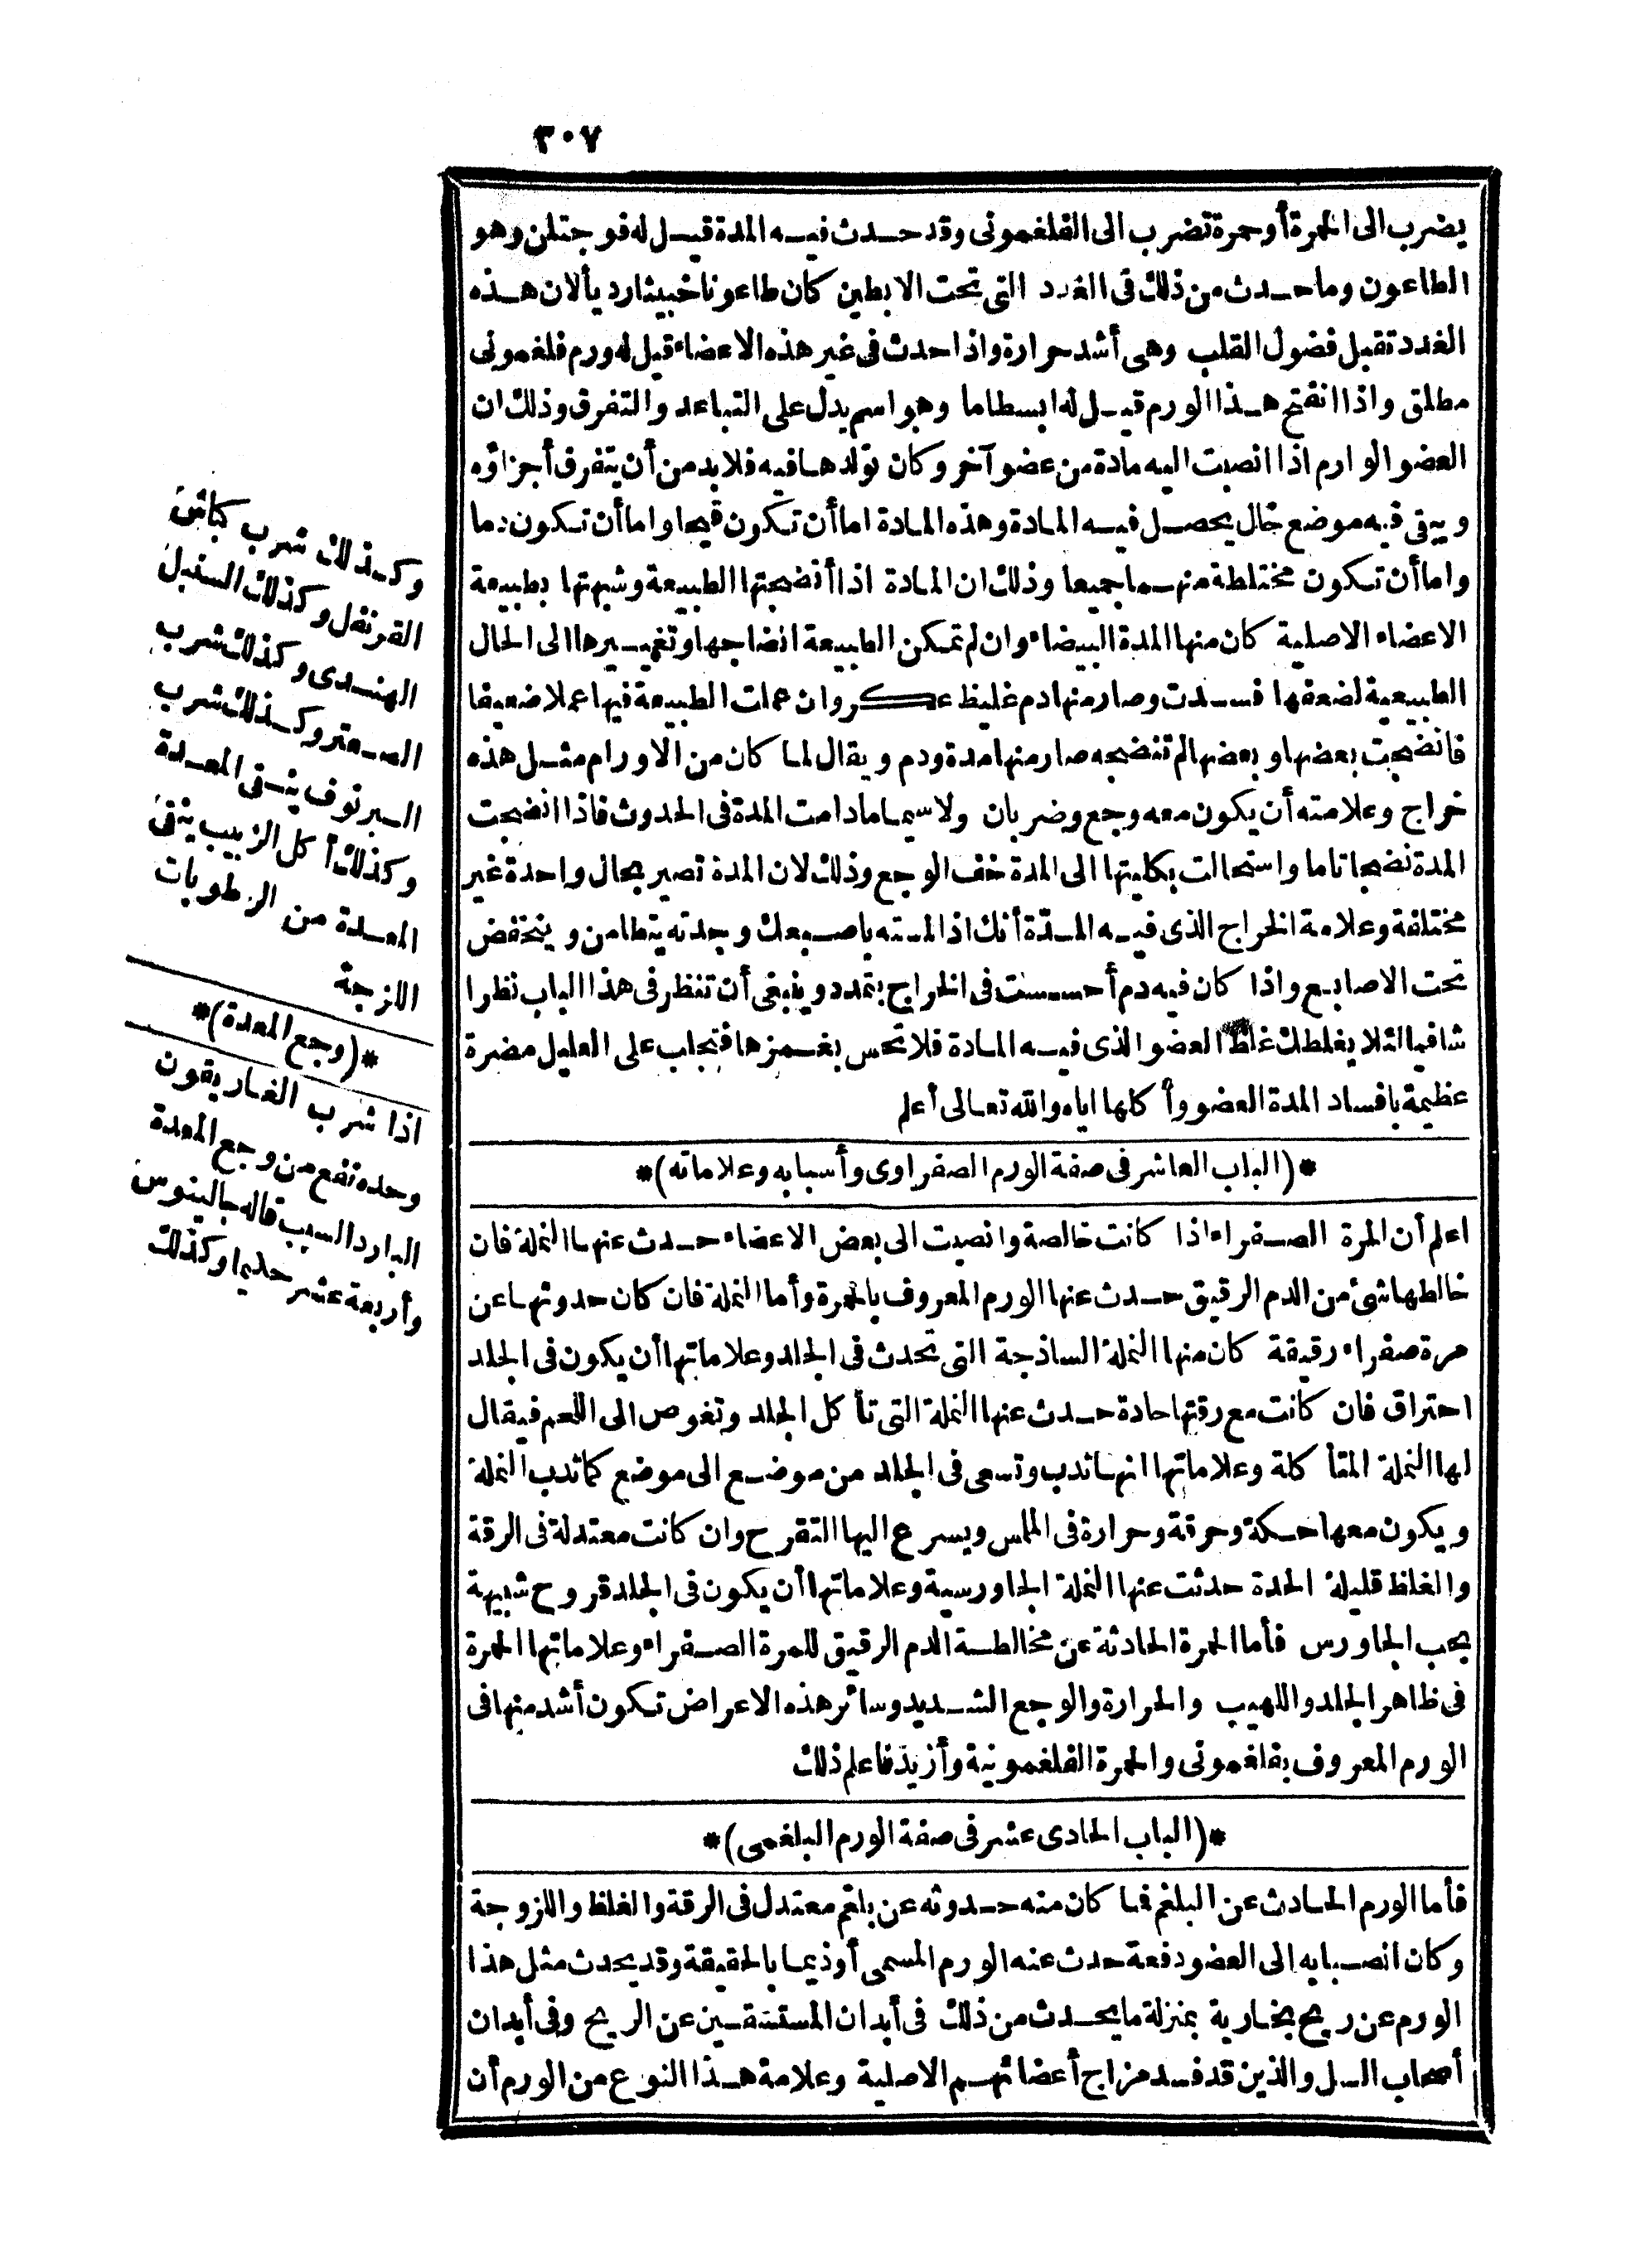 ٣٠٧
يضرب الى الحمرة أو حمرة تضرب الى الفلغمونى وقد حدث فيه المدة قيل له فوجتلن وهو
الطاعون وما حدث من ذلك فى الغدد التى تحت الابطين كان طاعونا خبيثا رديأ لان هذه
الغدد تقبل فضول القلب وهى أشد حرارة واذا حدث فى غير هذه الاعضاء قيل له ورم فلغمونى
مطلق واذا انفتح هذا الورم قيل له ابسطاما وهو اسم يدل على التباعد والتفرق وذلك ان
العضو الوارم اذا انصبت اليه مادة من عضو آخر وكان تولدها فيه فلابد من أن يتفرق أجزاؤه
ويبقى فيه موضع خال يحصل فيه المادة وهذه المادة اما أن تكون قيحا واما أن تكون دما
واما أن تكون مختلطة منهما جميعا وذلك ان المادة اذا أنضجتها الطبيعة وشبهتها بطبيعة
الاعضاء الاصلية كان منها المدة البيضاء وان لم تمكن الطبيعة انضاجها وتغييرها الى الحال
الطبيعية لضعفها فسدت وصار منها دم غليظ عكر وان عملت الطبيعة فيها عملا ضعيفا
فانضجت بعضها وبعضها لم تنضجه صار منها مدة ودم ويقال لما كان من الاورام مثل هذه
خراج وعلامته أن يكون معه وجع وضربان ولاسيما مادامت المدة فى الحدوث فاذا انضجت
المدة نضجا تاما واستحالت بكليتها الى المدة خف الوجع وذلك لان المدة تصير بحال واحدة غير
مختلفة وعلامة الخراج الذى فيه المدّة أنك اذا لمسته باصبعك وجدته يتطامن وينخفض
تحت الاصابع واذا كان فيه دم أحسست فى الخراج بتمدد وينبغى أن تنظر فى هذا الباب نظرا
شافيا لئلا يغلطك غلظ العضو الذى فيه المادة فلا تحس بغمزها فتجلب على العليل مضرة
عظيمة بافساد المدة العضو وأكلها اياه والله تعالى أعلم
*(الباب العاشر فى صفة الورم الصفراوى وأسبابه وعلاماته)*
اعلم أن المرة الصفراء اذا كانت خالصة وانصبت الى بعض الاعضاء حدث عنها النملة فان
خالطها شئ من الدم الرقيق حدث عنها الورم المعروف بالحمرة وأما النملة فان كان حدوثها عن
مرة صفراء رقيقة كان منها النملة الساذجة التى تحدث فى الجلد وعلاماتها أن يكون فى الجلد
احتراق فان كانت مع رقتها حادة حدث عنها النملة التى تأكل الجلد وتغوص الى اللحم فيقال
لها النملة المتأكلة وعلاماتها انها تدب وتسعى فى الجلد من موضع الى موضع كما تدب النملة
ويكون معها حكة وحرقة وحرارة فى الملمس ويسرع اليها التقرح وان كانت معتدلة فى الرقة
والغلظ قليلة الحدة حدثت عنها النملة الجاورسية وعلاماتها أن يكون فى الجلد قروح شبيهة
بحب الجاورس فأما الحمرة الحادثة عن مخالطة الدم الرقيق للمرة الصفراء وعلاماتها الحمرة
فى ظاهر الجلد واللهيب والحرارة والوجع الشديد وسائر هذه الاعراض تكون أشد منها فى
الورم المعروف بفلغمونى والحمرة الفلغمونية وأزيد فاعلم ذلك
*(الباب الحادى عشر فى صفة الورم البلغمى)*
فأما الورم الحادث عن البلغم فما كان منه حدوثه عن بلغم معتدل فى الرقة والغلظ واللزوجة
وكان انصبابه الى العضو دفعة حدث عنه الورم المسمى أوذيما بالحقيقة وقد يحدث مثل هذا
الورم عن ريح بخارية بمنزلة ما يحدث من ذلك فى أبدان المستسقين عن الريح وفى أبدان
أصحاب السل والذين قد فسد مزاج أعضائهم الاصلية وعلامة هذا النوع من الورم أن
وكذلك شرب كباش
القرنفل وكذلك السنبل
الهندى وكذلك شرب
الصعتر وكذلك شرب
البرنوف ينقى المعدة
وكذلك أكل الزبيب ينقى
المعدة من الرطوبات
اللزجة
*(وجع المعدة)*
اذا شرب الغاريقون
وحده نفع من وجع المعدة
البارد السبب قاله جالينوس
وأربعة عشر حكيما وكذلك